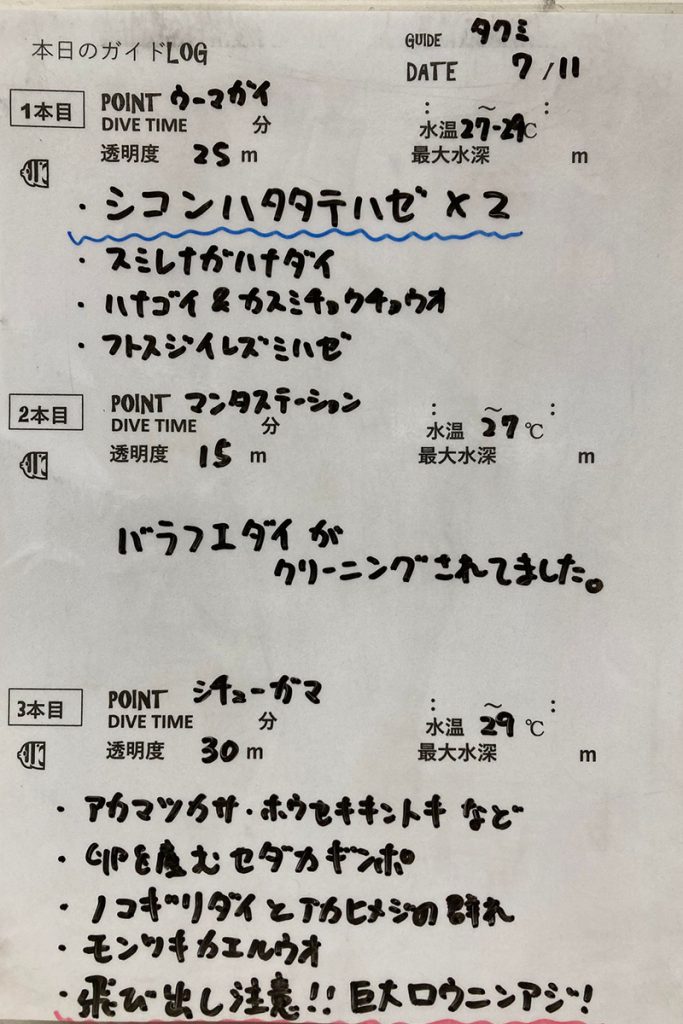 本日のガイドLOG
GUIDE タクミ
DATE 7/11
1本目
POINT ウーマガイ
: ～ :
DIVE TIME 分
水温 27-29℃
透明度 25 m
最大水深 m
・シコンハタタテハゼ×2
・スミレナガハナダイ
・ハナゴイ&カスミチョウチョウオ
・フトスジイレズミハゼ
2本目
POINT マンタステーション
: ～ :
DIVE TIME 分
水温 27℃
透明度 15 m
最大水深 m
バラフエダイが
クリーニングされてました。
3本目
POINT シチューガマ
: ～ :
DIVE TIME 分
水温 29℃
透明度 30 m
最大水深 m
・アカマツカサ・ホウセキキントキなど
・卵を産むセダカギンポ
・ノコギリダイとアカヒメジの群れ
・モンツキカエルウオ
・飛び出し注意!!巨大ロウニンアジ!